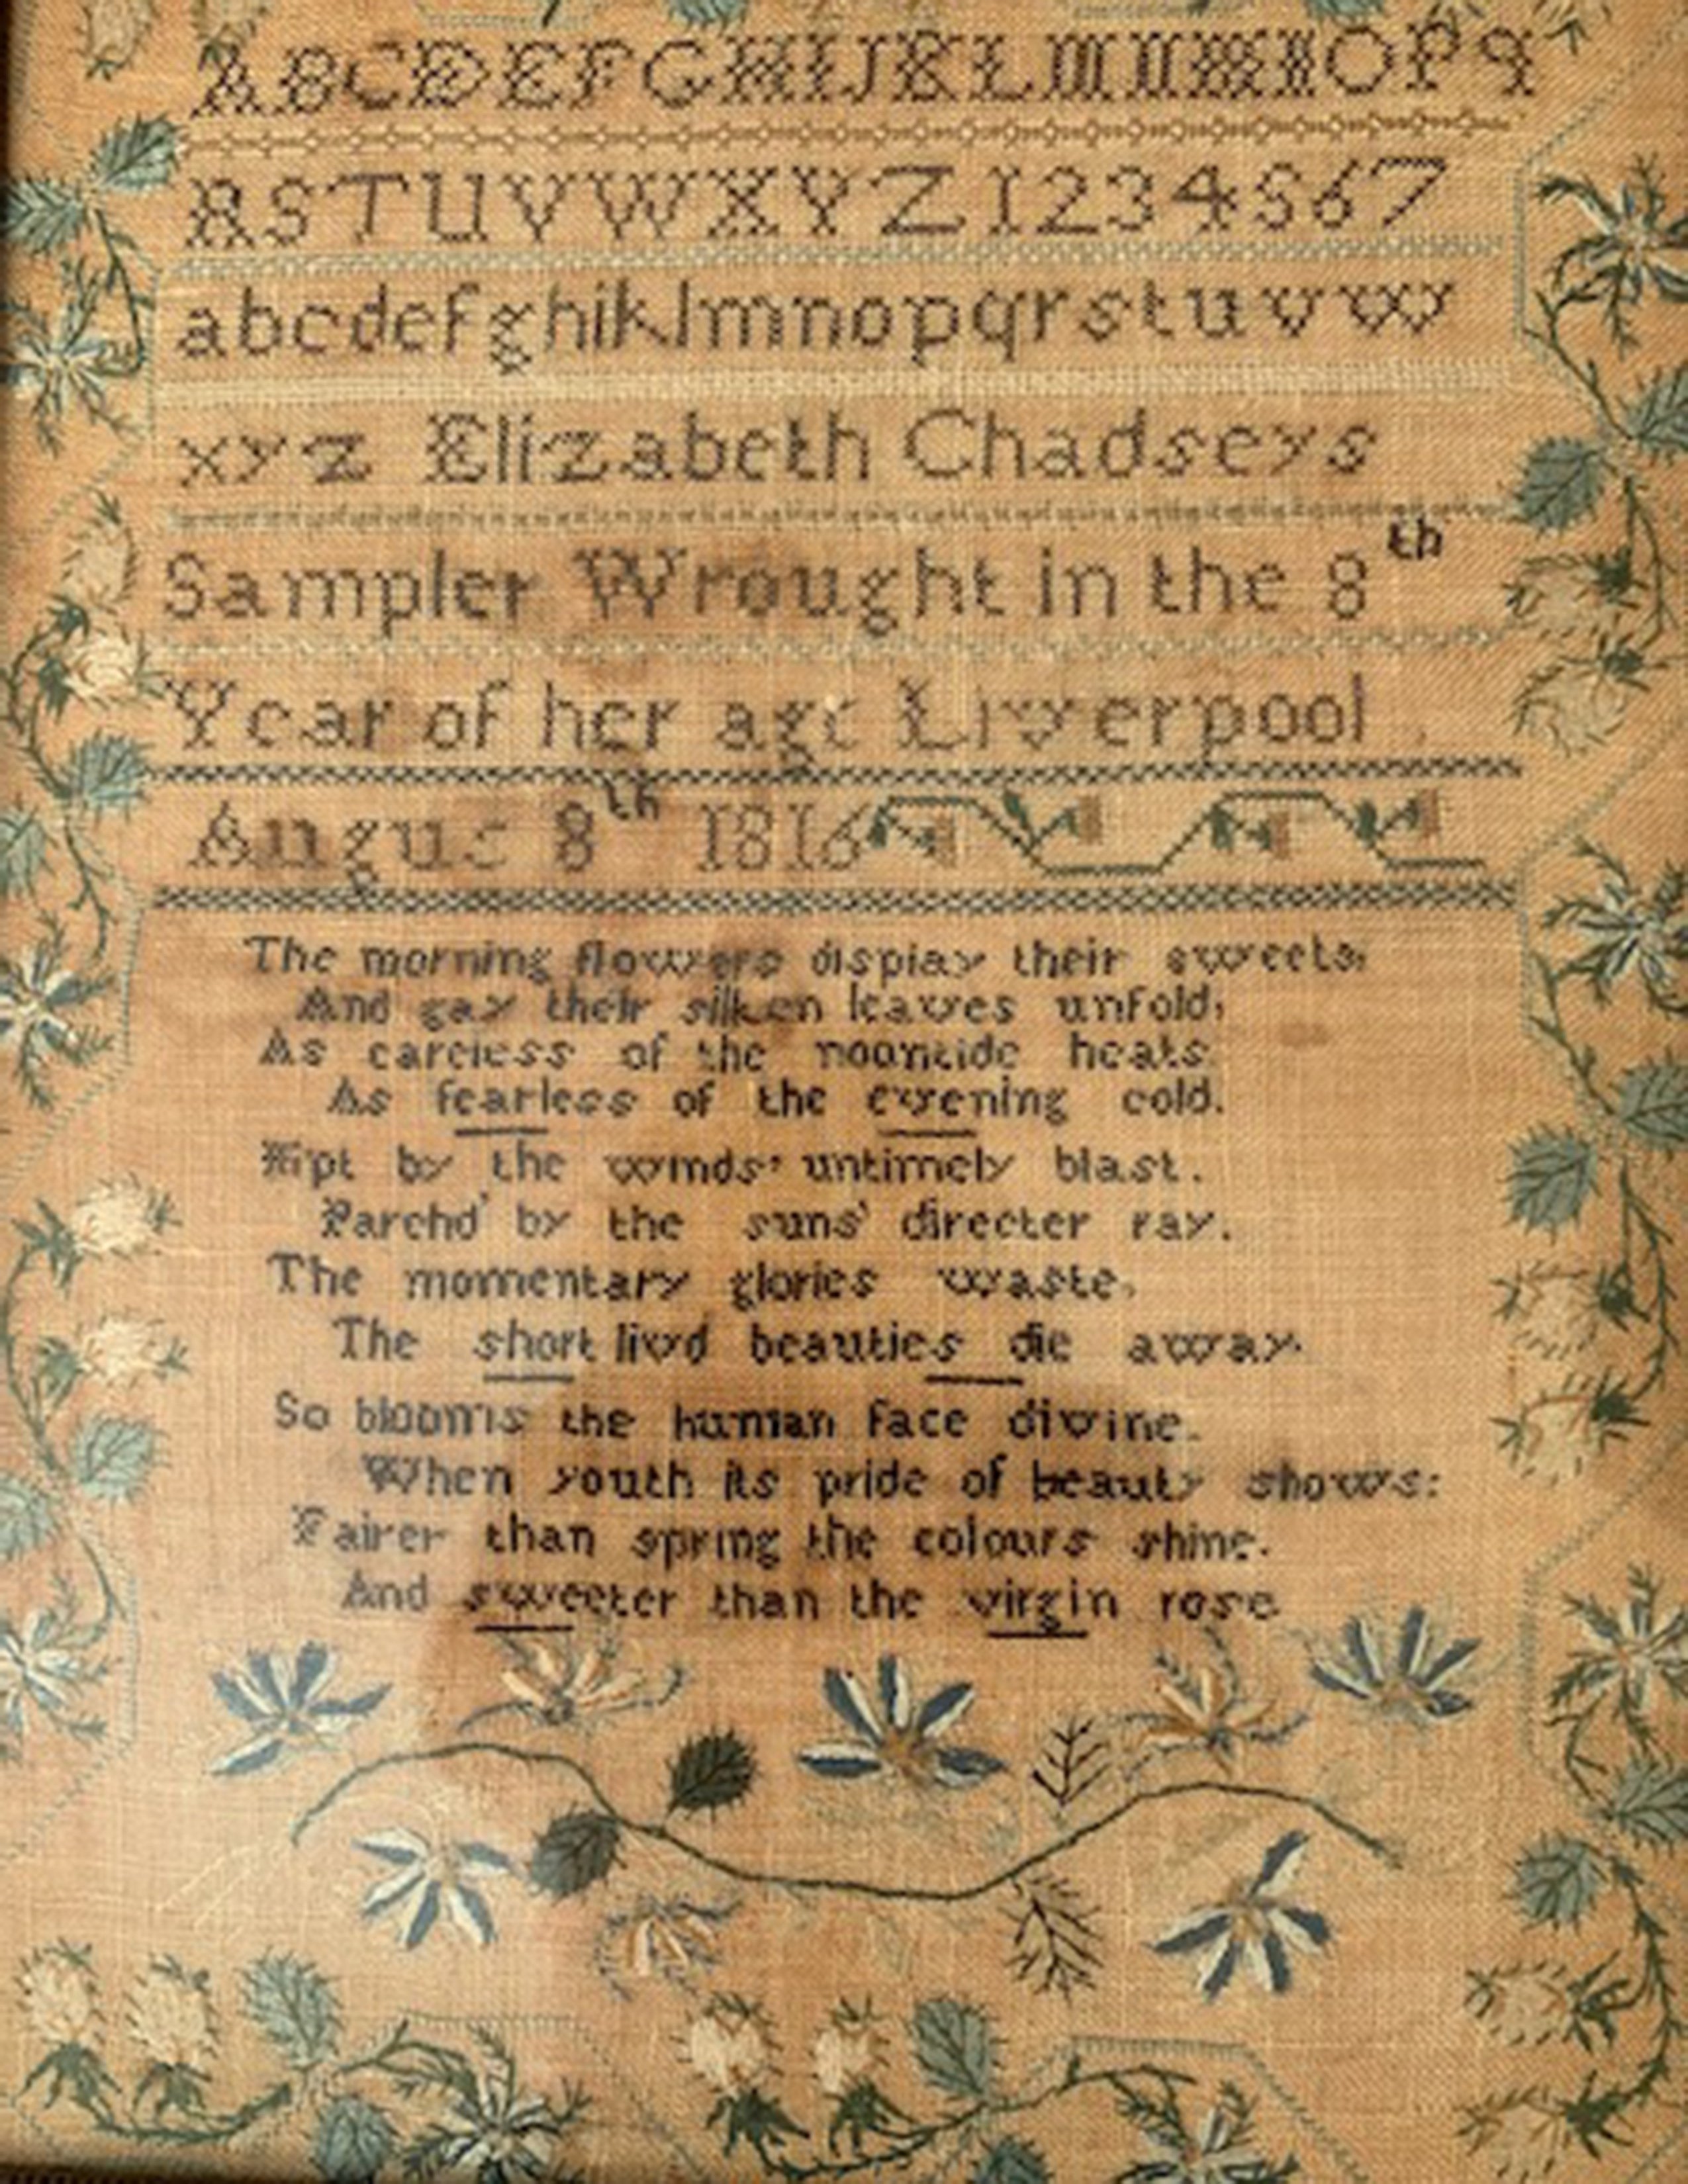 ABCDEFGHIJKLMNOPq
RSTUVWXYZ1234567
abcdefghiklmnopqrstuvw
xyz Elizabeth Chadseys
Sampler Wrought in the 8th
Year of her age Liverpool
Augus 8th 1816
The morning flowers display their sweets,
And gay their silken leaves unfold,
As careless of the noontide heats
As fearless of the evening cold.
Nipt by the winds' untimely blast.
Parchd' by the suns' directer ray.
The momentary glories waste,
The short livd beauties die away.
So blooms the human face divine.
When youth its pride of beauty shows:
Fairer than spring the colours shine.
And sweeter than the virgin rose